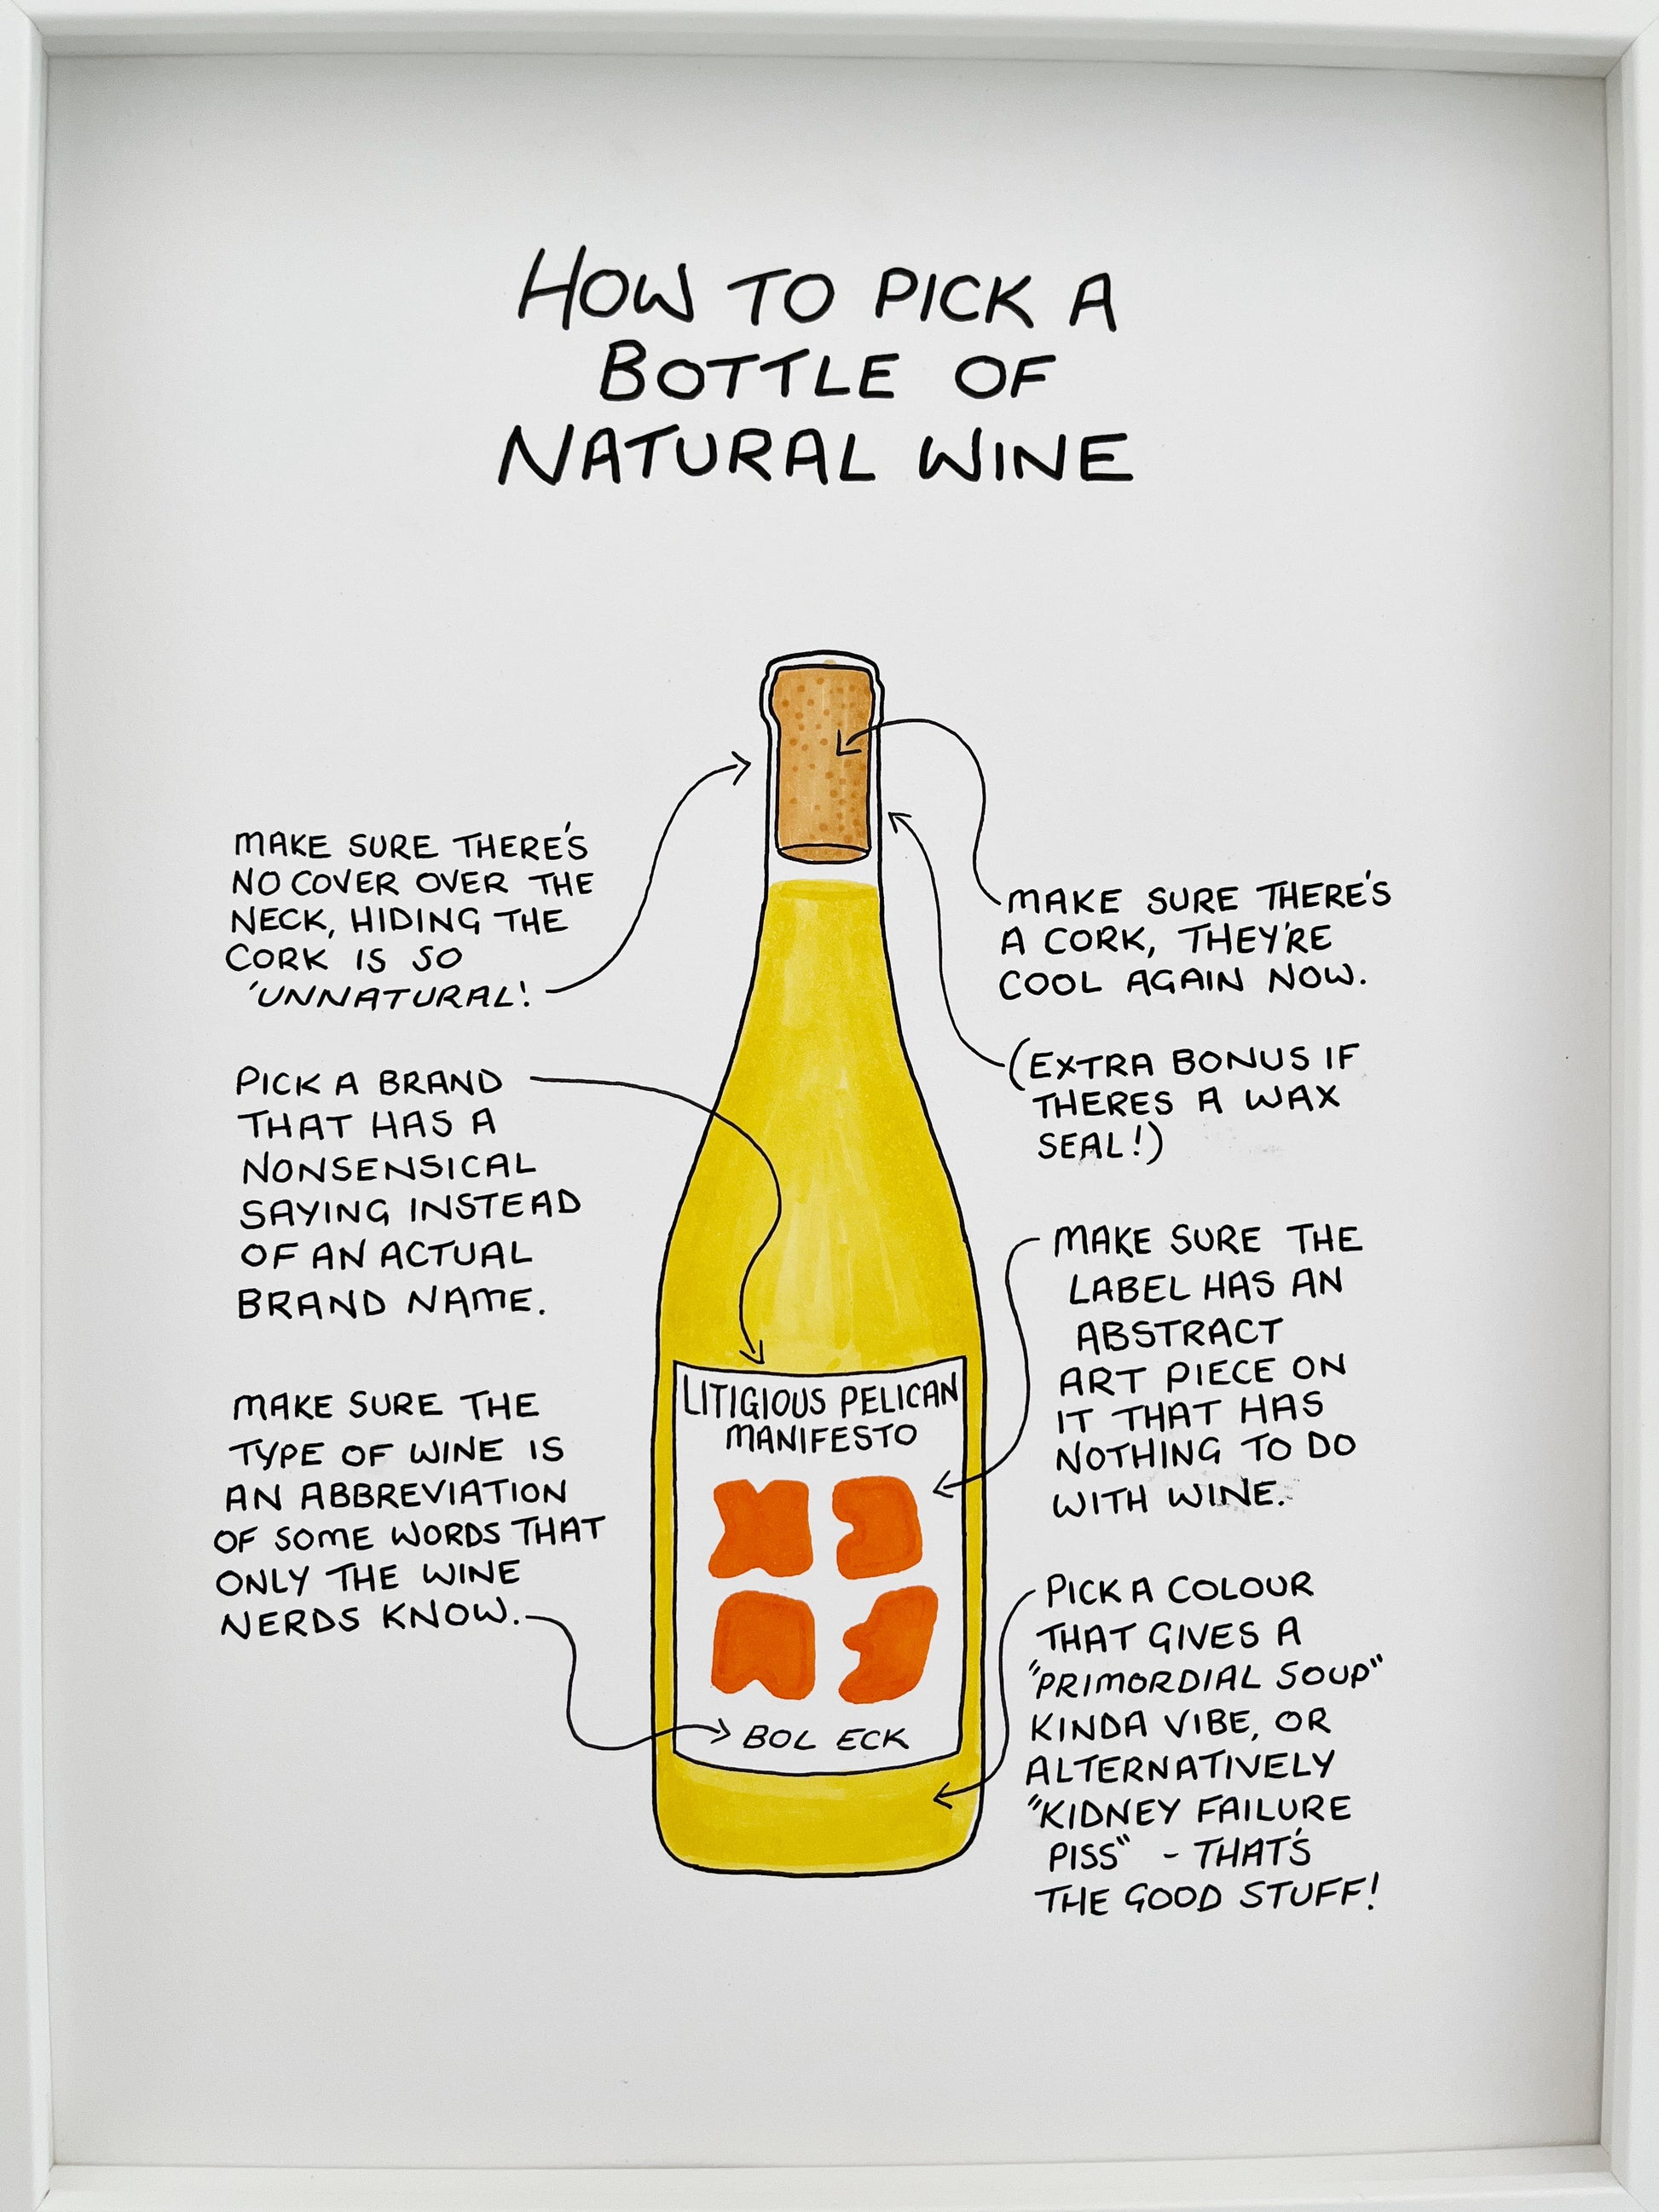 HOW TO PICK A
BOTTLE OF
NATURAL WINE
MAKE SURE THERE'S
NO COVER OVER THE
NECK, HIDING THE
CORK IS SO
'UNNATURAL!
PICK A BRAND
THAT HAS A
NONSENSICAL
SAYING INSTEAD
OF AN ACTUAL
BRAND NAME.
MAKE SURE THE
TYPE OF WINE IS
AN ABBREVIATION
OF SOME WORDS THAT
ONLY THE WINE
NERDS KNOW.
LITIGIOUS PELICAN
MANIFESTO
BOL ECK
MAKE SURE THERE'S
A CORK, THEY'RE
COOL AGAIN NOW.
(EXTRA BONUS IF
THERES A WAX
SEAL!)
MAKE SURE THE
LABEL HAS AN
ABSTRACT
ART PIECE ON
IT THAT HAS
NOTHING TO DO
WITH WINE.
PICK A COLOUR
THAT GIVES A
"PRIMORDIAL SOUP"
KINDA VIBE, OR
ALTERNATIVELY
"KIDNEY FAILURE
PISS" - THAT'S
THE GOOD STUFF!